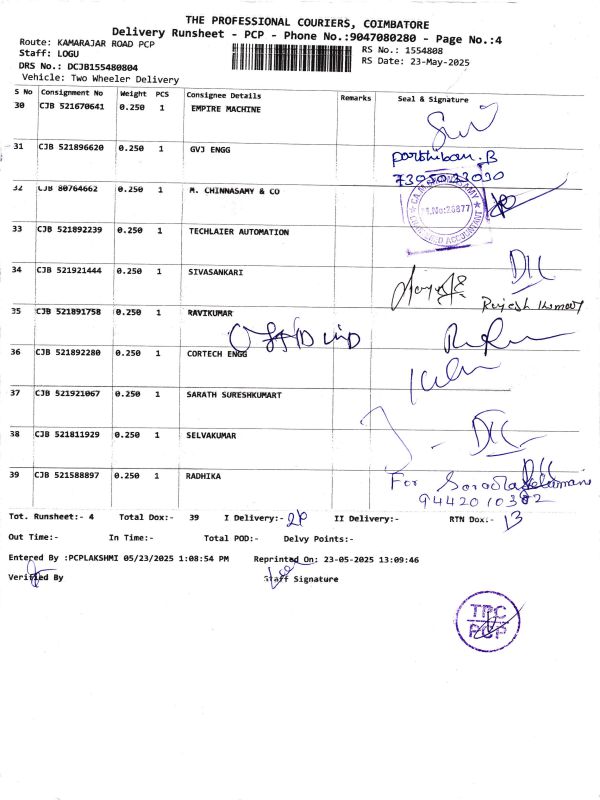 THE PROFESSIONAL COURIERS, COIMBATORE
Delivery Runsheet - PCP - Phone No.:9047080280 - Page No.:4
Route: KAMARAJAR ROAD PCP
RS No.: 1554808
Staff: LOGU
RS Date: 23-May-2025
DRS No.: DCJB155480804
Vehicle: Two Wheeler Delivery
S No Consignment No Weight PCS Consignee Details Remarks Seal & Signature
30 CJB 521670641 0.250 1 EMPIRE MACHINE
31 CJB 521896620 0.250 1 GVJ ENGG
parthiban.B
7305033030
32 CJB 80764662 0.250 1 M. CHINNASAMY & CO
33 CJB 521892239 0.250 1 TECHLAIER AUTOMATION
34 CJB 521921444 0.250 1 SIVASANKARI
35 CJB 521891758 0.250 1 RAVIKUMAR
36 CJB 521892280 0.250 1 CORTECH ENGG
37 CJB 521921067 0.250 1 SARATH SURESHKUMART
38 CJB 521811929 0.250 1 SELVAKUMAR
39 CJB 521588897 0.250 1 RADHIKA
For
9442010382
Tot. Runsheet:- 4 Total Dox:- 39 I Delivery:- II Delivery:- RTN Dox:- 13
Out Time:- In Time:- Total POD:- Delvy Points:-
Entered By :PCPLAKSHMI 05/23/2025 1:08:54 PM Reprinted On: 23-05-2025 13:09:46
Verified By Staff Signature
TPC
PCP